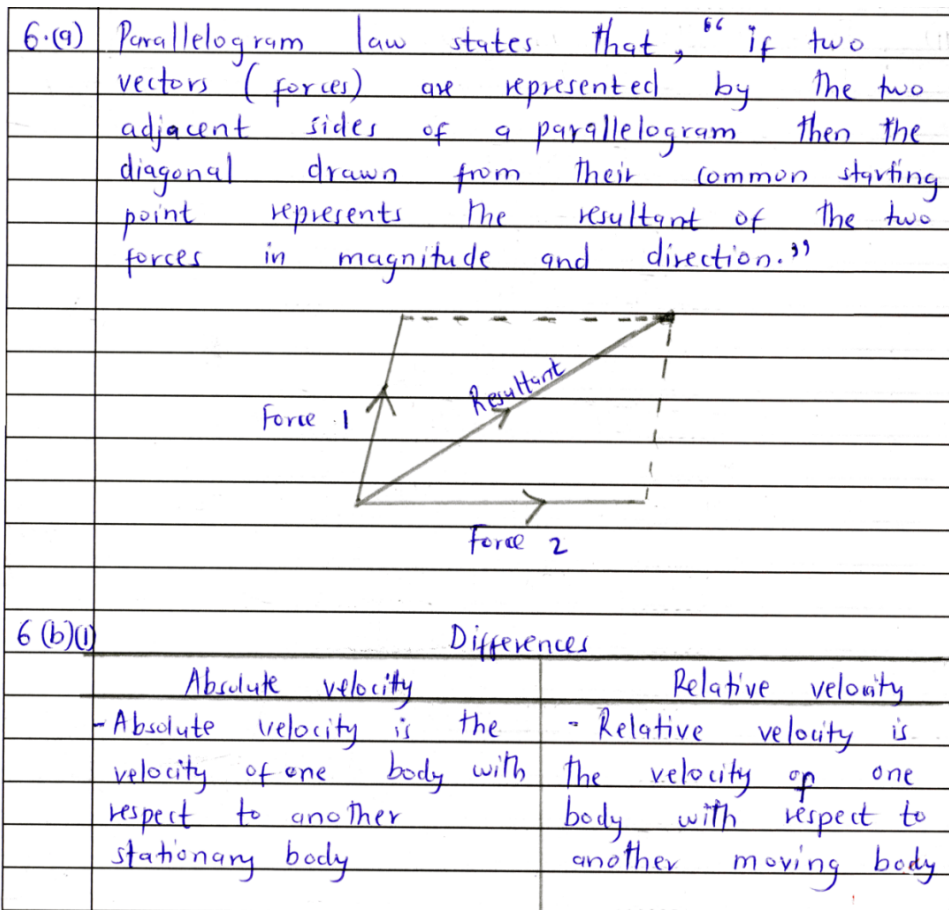 6.(a) Parallelogram law states that, “ if two
vectors (forces) are represented by the two
adjacent sides of a parallelogram then the
diagonal drawn from their common starting
point represents the resultant of the two
forces in magnitude and direction.”
Resultant
Force 1
Force 2
6 (b)(i) Differences
Absolute velocity
- Absolute velocity is the
velocity of one body with
respect to another
stationary body
Relative velocity
- Relative velocity is
the velocity of one
body with respect to
another moving body